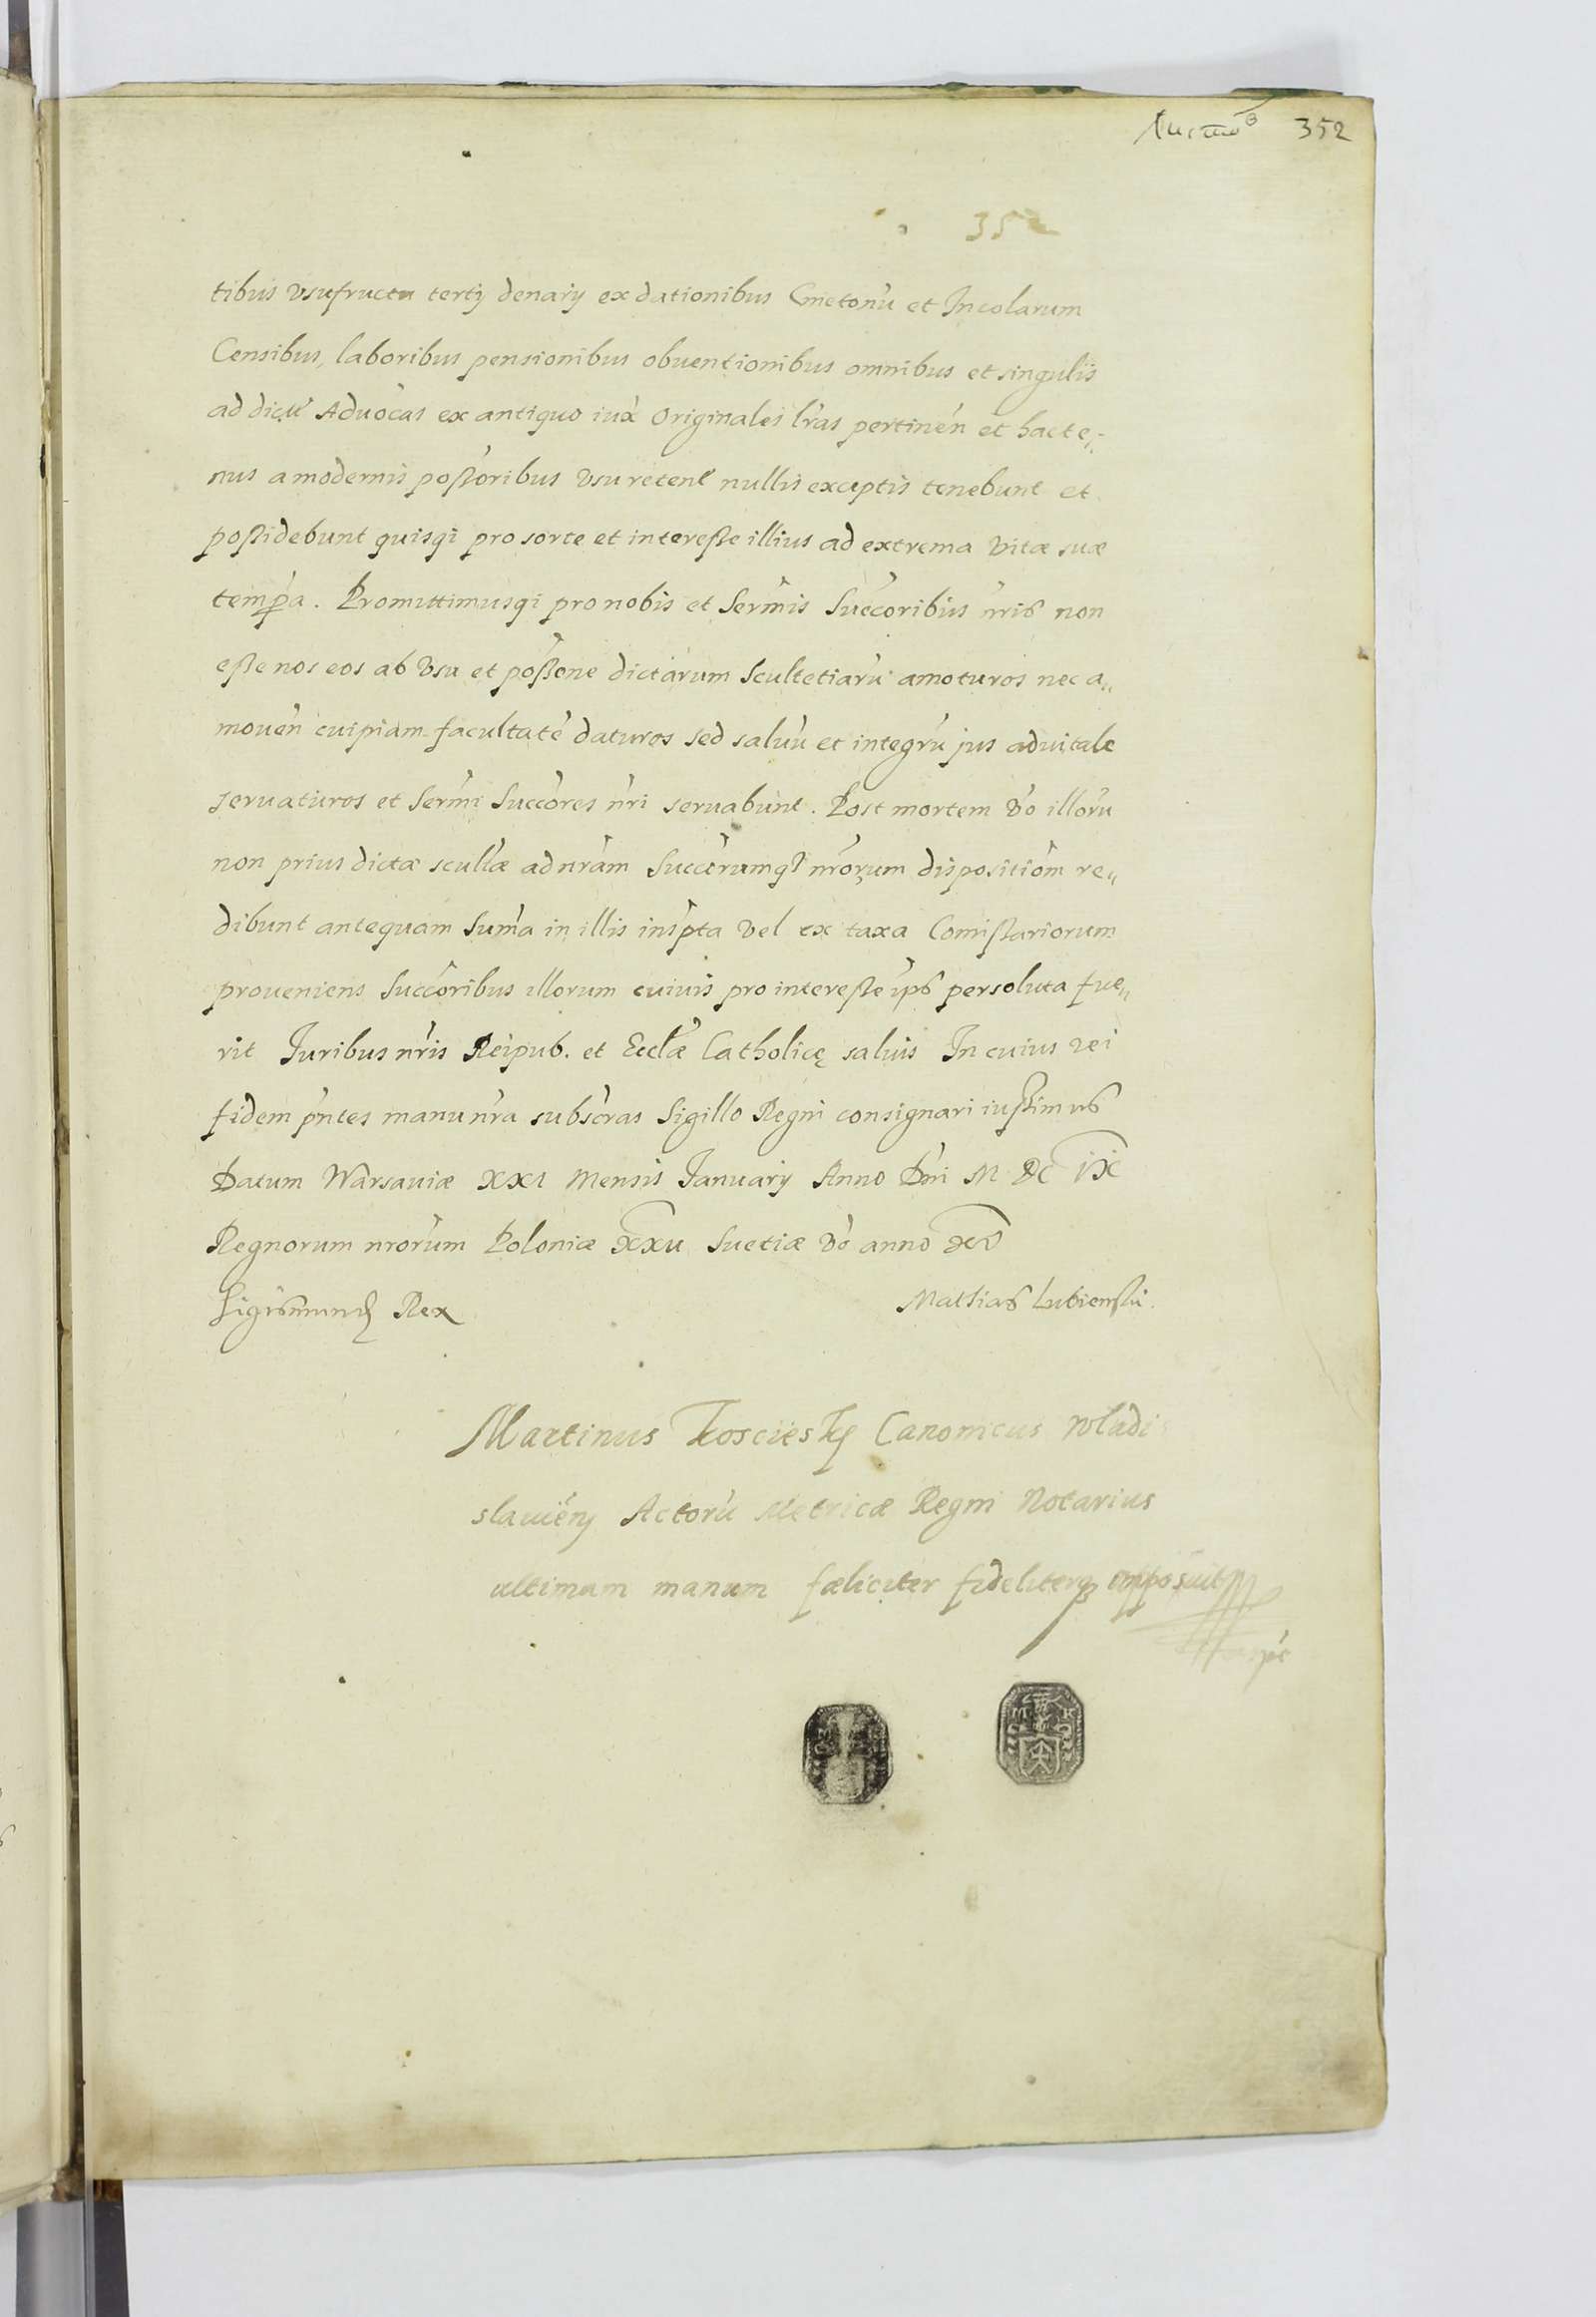 Листов 352
352
tibus vsufructu tertij denarij ex dationibus Cmetonũ et Incolarum
Censibus, laboribus pensionibus obuentionibus omnibus et singulis
ad dictũ Aduocas ex antiquo iuxã Originales lras pertineñ et hacte„
nus a modernis possoribus vsu retent nullis exceptis tenebunt et
possidebunt quisqi pro sorte et interesse illius ad extrema vitæ suæ
tempa. Promittimusqi pro nobis et Sermis Succoribus nris non
esse nos eos ab vsu et possone dictarum Scultetiarũ amoturos nec a„
mouen cuipiam facultatẽ daturos sed saluũ et integrũ jus aduitale
seruaturos et Sermi Succores nri seruabunt. Post mortem vo illorũ
non prius dictæ scultæ ad nram Succorumq nrorum dispositiom re„
dibunt antequam Suma in illis inspta vel ex taxa Comissariorum
proueniens Succoribus illorum cuiuis pro interesse ips persoluta fue„
rit Juribus nris Reipub. et Ecclæ Catholicę saluis In cuius rei
fidem pntes manu nra subscras Sigillo Regni consignari iussimus
Datum Warsauiæ XXI Mensis Januarij Anno Dni M DC IX
Regnorum nrorum Poloniæ XXII Suetiæ vo anno XV
Sigismundus Rex
Mathias Lubienski.
Martinus Koscieski Canonicus Wladi
slauień Actorũ Metricæ Regni Notarius
ultimam manum fæliciter fideliterq apposuit
mpc
M K
M K